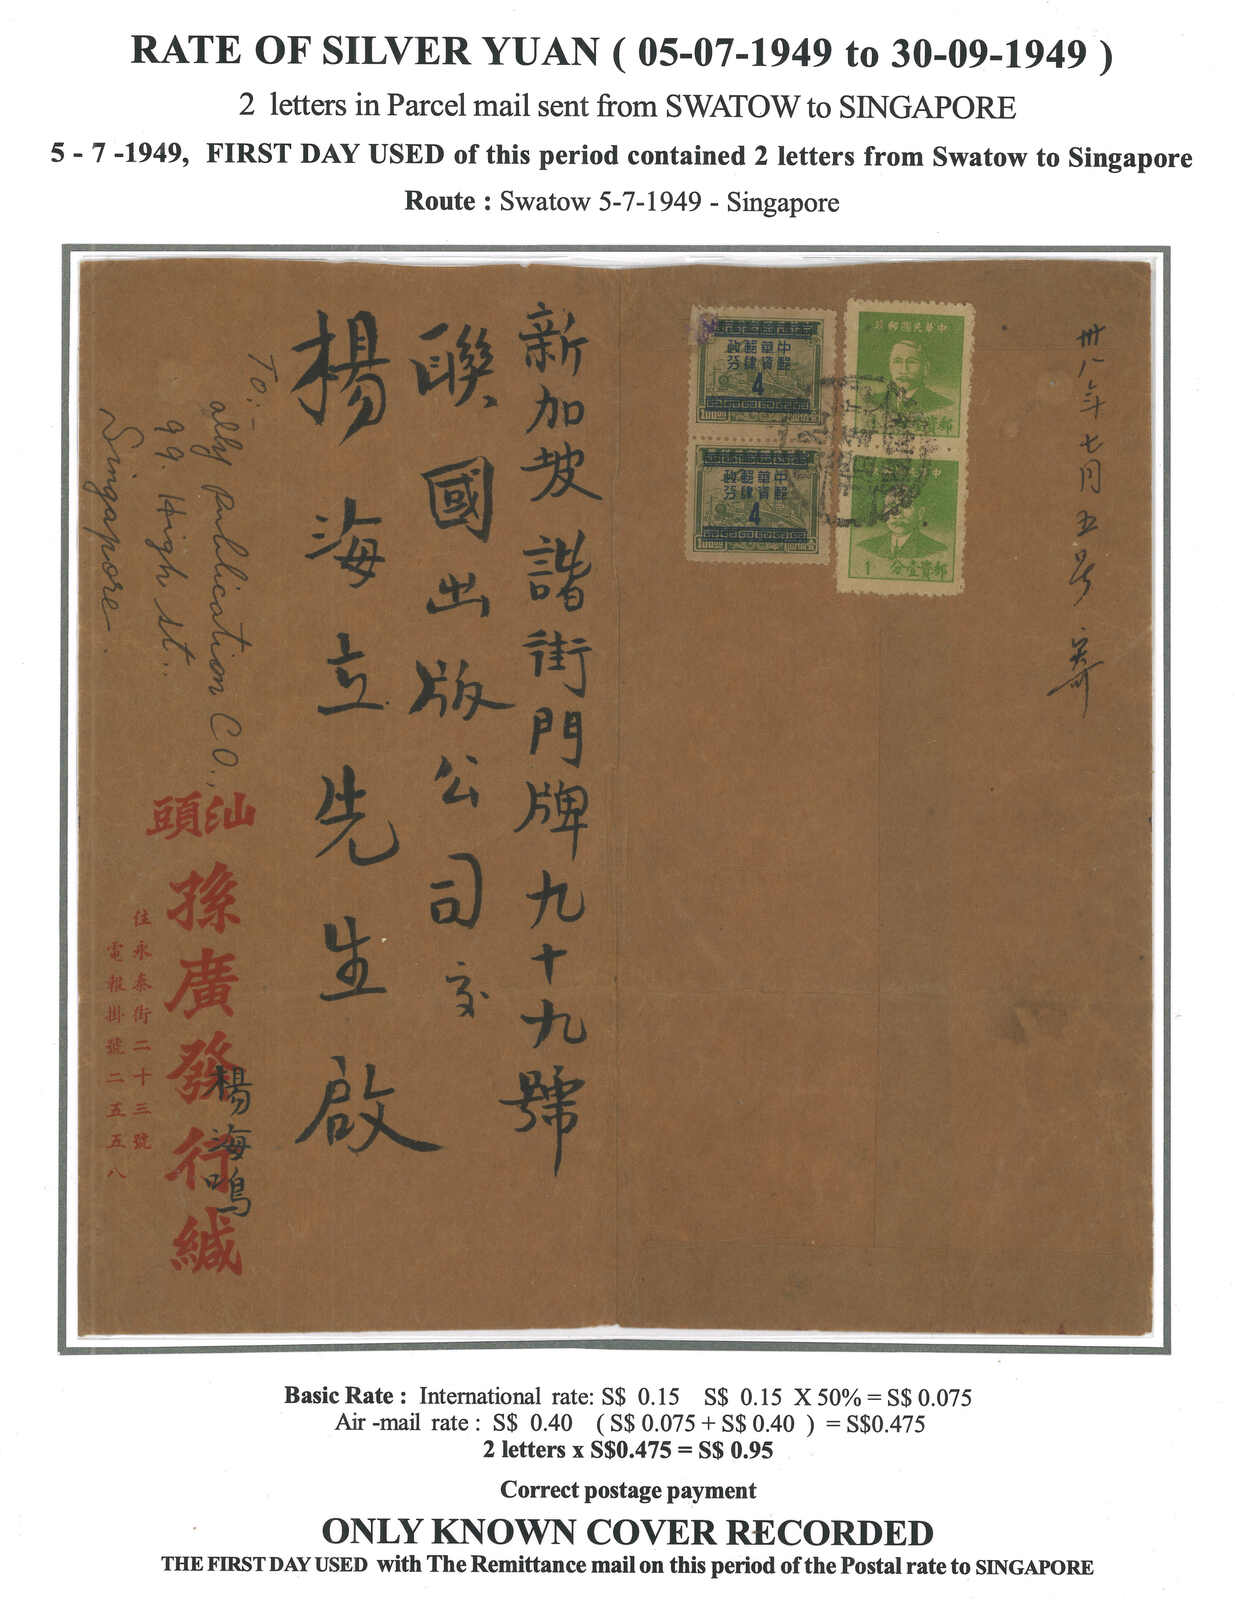 RATE OF SILVER YUAN ( 05-07-1949 to 30-09-1949 )
2 letters in Parcel mail sent from SWATOW to SINGAPORE
5 - 7 -1949, FIRST DAY USED of this period contained 2 letters from Swatow to Singapore
Route : Swatow 5-7-1949 - Singapore
卅八年七月五号寄
票郵國民華中
1 分壹資郵
1 分壹資郵
政郵華中
分肆資郵
4
100圓
政郵華中
分肆資郵
4
100圓
新加坡諧街門牌九十九號
聯國出版公司交
楊海立先生啟
To:-
Ally Publication CO.,
99. High st.
Singapore.
頭汕
孫廣發行緘
楊海鳴
住永泰街二十三號
電報掛號二五五八
Basic Rate : International rate: S$ 0.15 S$ 0.15 X 50% = S$ 0.075
Air -mail rate : S$ 0.40 ( S$ 0.075 + S$ 0.40 ) = S$0.475
2 letters x S$0.475 = S$ 0.95
Correct postage payment
ONLY KNOWN COVER RECORDED
THE FIRST DAY USED with The Remittance mail on this period of the Postal rate to SINGAPORE